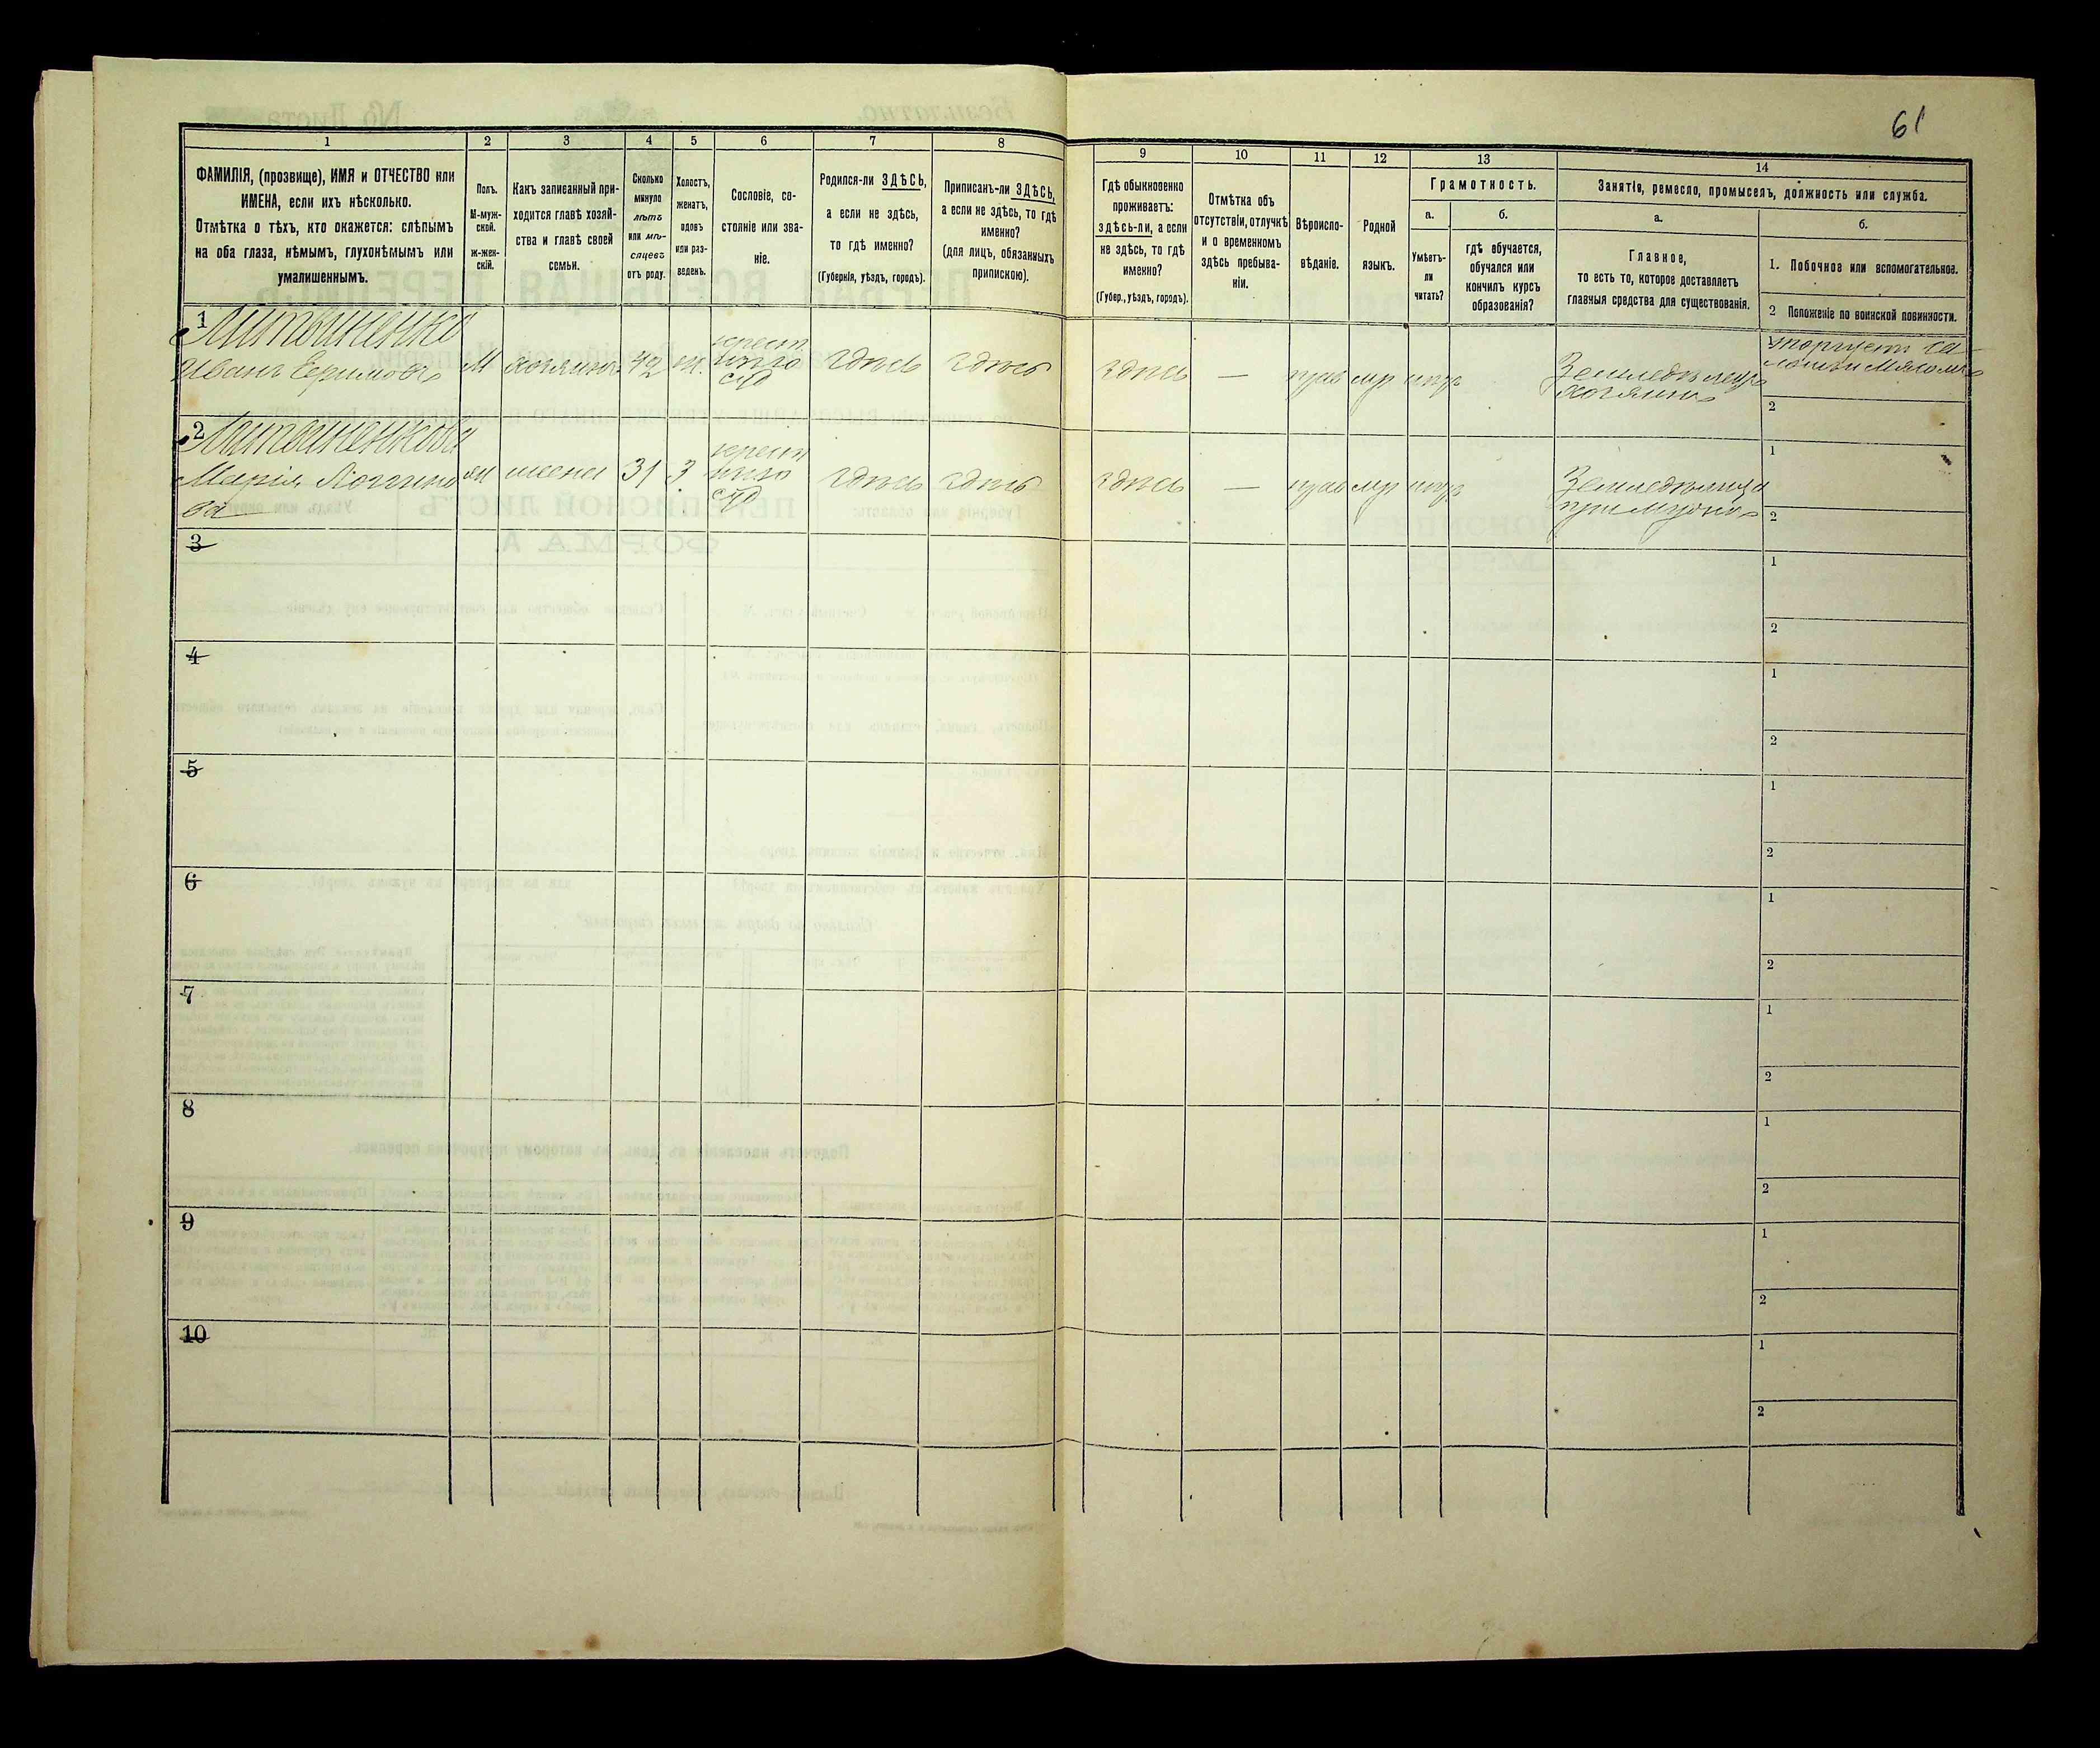 61
1
2
3
4
5
6
7
8
9
10
11
12
13
14
ФАМИЛІЯ, (прозвище), ИМЯ и ОТЧЕСТВО или
ИМЕНА, если ихъ нѣсколько.
Отмѣтка о тѣхъ, кто окажется: слѣпымъ
на оба глаза, нѣмымъ, глухонѣмымъ или
умалишеннымъ.
Полъ.
М-муж-
ской.
ж-жен-
скій.
Какъ записанный при-
ходится главѣ хозяй-
ства и главѣ своей
семьи.
Сколько
минуло
лѣтъ
или мѣ-
сяцевъ
отъ роду.
Холостъ,
женатъ,
вдовъ
или раз-
веденъ.
Сословіе, со-
стояніе или зва-
ніе.
Родился-ли ЗДѢСЬ,
а если не здѣсь,
то гдѣ именно?
(Губернія, уѣздъ, городъ).
Приписанъ-ли ЗДѢСЬ,
а если не здѣсь, то гдѣ
именно?
(для лицъ, обязанныхъ
припискою).
Гдѣ обыкновенно
проживаетъ:
здѣсь-ли, а если
не здѣсь, то гдѣ
именно?
(Губер., уѣздъ, городъ).
Отмѣтка объ
отсутствіи, отлучкѣ
и о временномъ
здѣсь пребыва-
ніи.
Вѣроиспо-
вѣданіе.
Родной
языкъ.
Грамотность.
а.
б.
Умѣетъ-
ли
читать?
гдѣ обучается,
обучался или
кончилъ курсъ
образованія?
Занятіе, ремесло, промыселъ, должность или служба.
а.
б.
Главное,
то есть то, которое доставляетъ
главныя средства для существованія.
1. Побочное или вспомогательное.
2 Положеніе по воинской повинности.
1
Литвиненко
Иванъ Ефимовъ
М
хозяинъ
42
крест
здѣсь
здѣсь
здѣсь
—
прав
мр
Земледѣлецъ
хозяинъ
торгуетъ
2
2
Литвиненкова
Марія Логгино
ва
жена
31
з
крест
здѣсь
здѣсь
здѣсь
—
прав
мр
Земледѣлица
при мужѣ
1
2
3
1
2
4
1
2
5
1
2
6
1
2
7
1
2
8
1
2
9
1
2
10
1
2